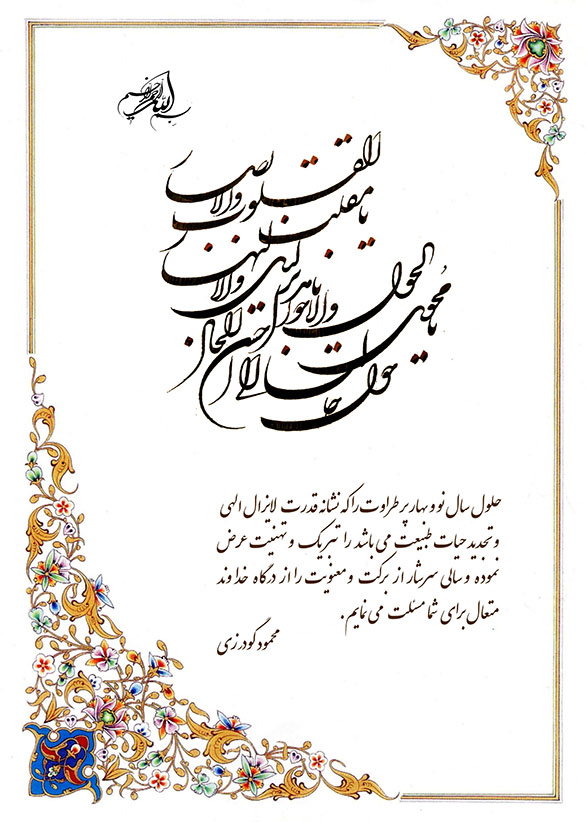 بسم الله الرحمن الرحیم
یا مقلب القلوب والابصار
یا مدبر اللیل والنهار
یا محول الحول والاحوال
حول حالنا الی احسن الحال
حلول سال نو و بهار پر طراوت را که نشانه قدرت لایزال الهی
و تجدید حیات طبیعت می باشد را تبریک و تهنیت عرض
نموده و سالی سرشار از برکت و معنویت را از درگاه خداوند
متعال برای شما مسئلت می نمایم.
محمود گودرزی